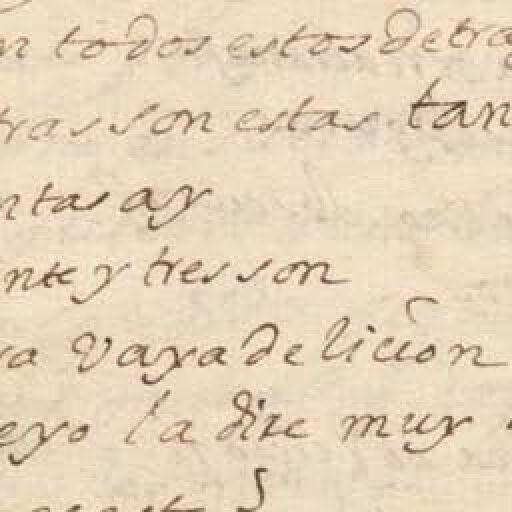 n todos estos detra
tras son estas tan
ntas ay
inte y tres son
ra vaya de licion
eyo la dire muy